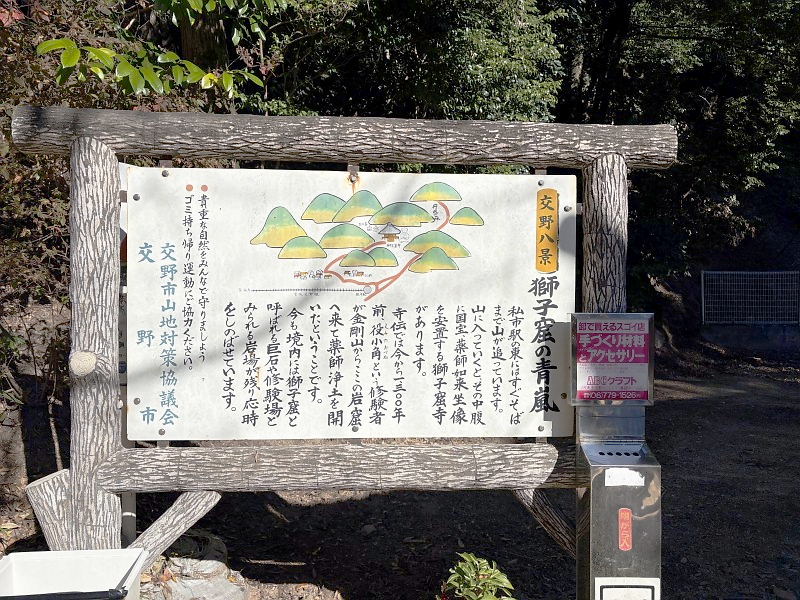 交野八景
獅子窟の青嵐
私市駅の東にはすぐそば
まで山が迫っています。
山に入っていくとその中腹
に国宝薬師如来坐像
を安置する獅子窟寺
があります。
寺伝では今から一三〇〇年
前、役小角という修験者
が金剛山からこの岩窟
へ来て薬師浄土を開
いたということです。
今も境内には獅子窟と
呼ばれる巨石や修験場と
みられる岩場が残り応時
をしのばせています。
貴重な自然をみんなで守りましょう
ゴミ持ち帰り運動にご協力ください。
交野市山地対策協議会
交野市
卸で買えるスゴイ店
手づくり材料
とアクセサリー
ABCクラフト
☎06・779-1526㈹
吸がら入